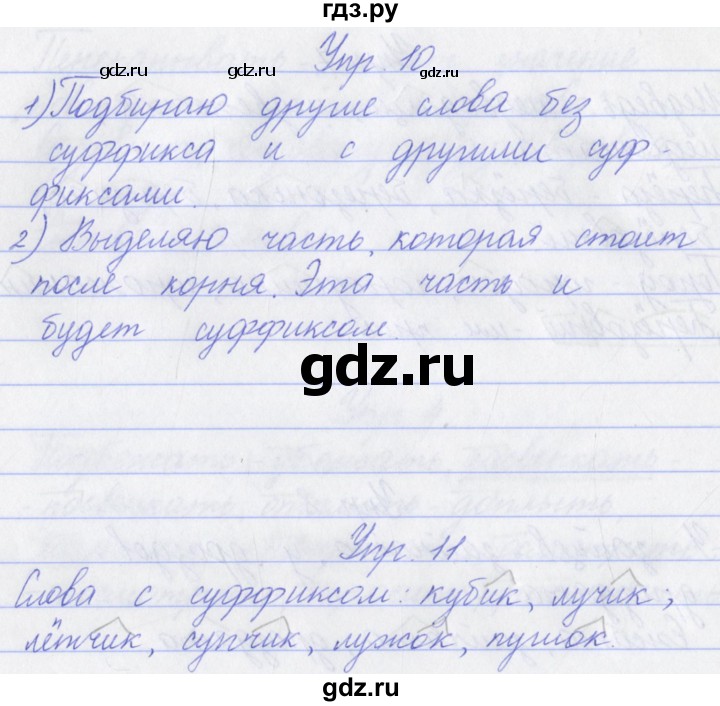 гдз.ру
Упр. 10
gdz.ru gdz.ru gdz.ru
1) Подбираю другие слова без
суффикса и с другими суф-
фиксами.
2) Выделяю часть, которая стоит
после корня. Эта часть и
будет суффиксом.
gdz.ru
Упр. 11
Слова с суффиксом: кубик, лучик;
лётчик, супчик, лужок, пушок.
gdz.ru